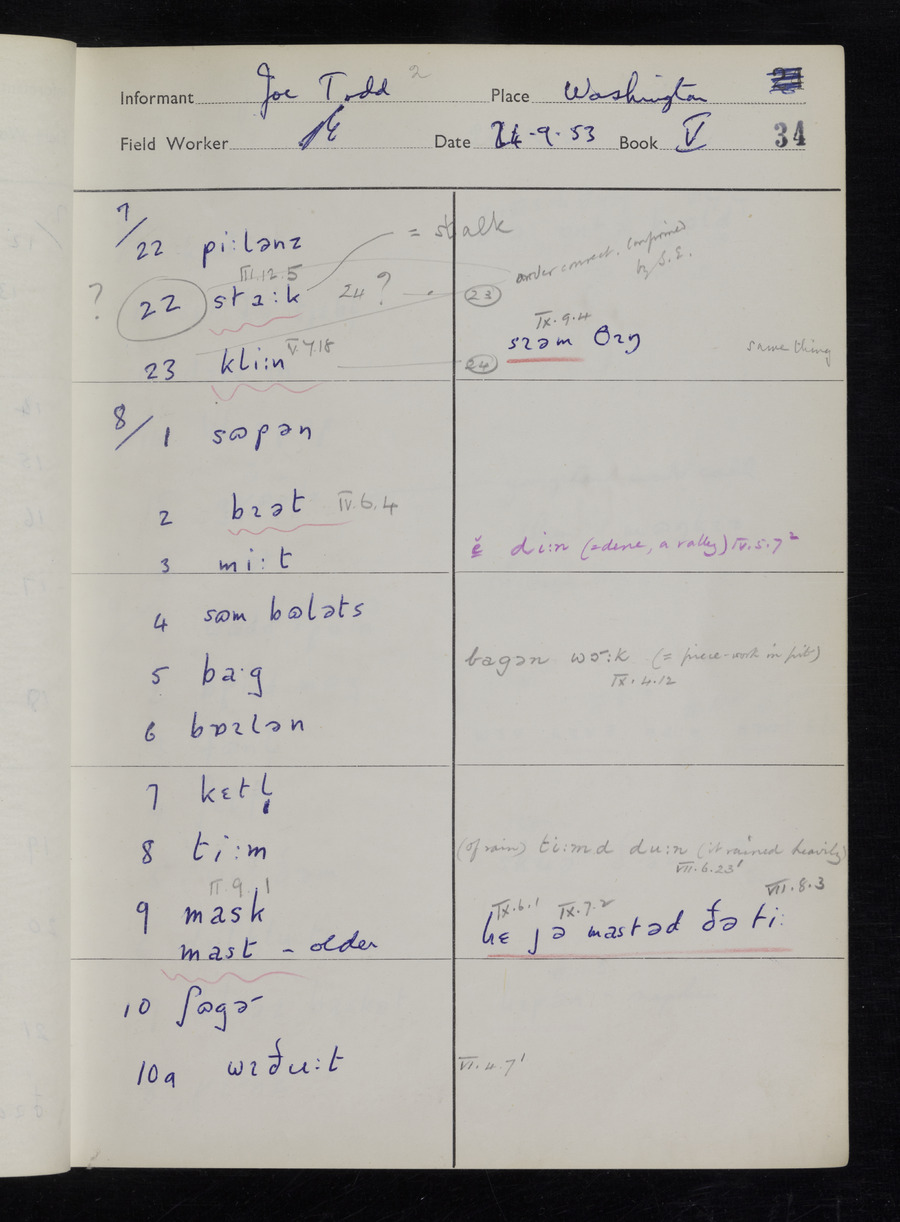 Informant Joe Todd 2 Place Washington
Field Worker Date 24-9-53 Book V 34
7/22 piːlənz = stalk
order correct. Confirmed by S.E.
III.12.5
? 22 staːk 24? — . 23
IX.9.4
sɪəm θɪŋ same thing
23 kliːn V.7.18 24
8/1 sɷpən
2 bɪət IV.6.4
3 miːt ĕ diːn (= dene, a valley) IV.5.7²
4 sɷm bɷləts
5 baˑg bagən wɔ̄ːk (= piece-work in pits)
IX.4.12
6 bɒɪlən
7 kɛtl̩
8 tiːm (of rain) tiːmd duːn (it rained heavily)
VII.6.23¹
II.9.1 VII.8.3
IX.6.1 IX.7.2
9 mask hɛ jə mastəd ðə tiː
mast – older
10 ʃɷgɚ
10a wɪðuːt VI.4.7¹